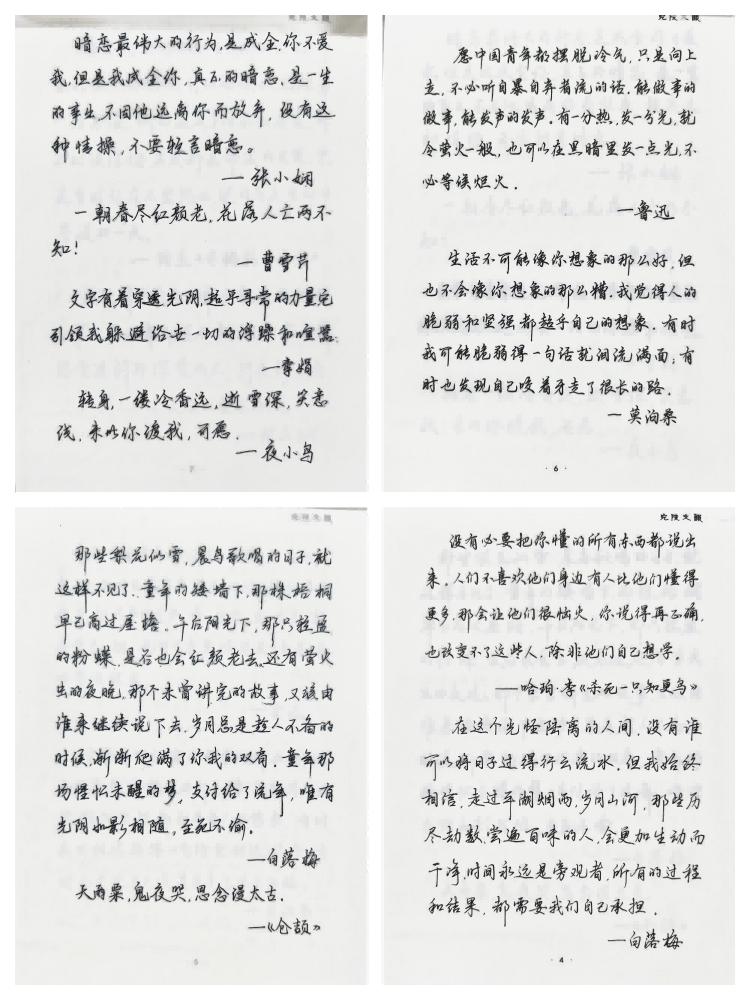 暗恋最伟大的行为，是成全。你不爱
我，但是我成全你，真正的暗恋，是一生
的事业，不因他远离你而放弃，没有这
种情操，不要轻言暗恋。
—张小娴
一朝春尽红颜老，花落人亡两不
知！
—曹雪芹
文字有着穿透光阴，超乎寻常的力量它
引领我躲避俗世一切的浮躁和喧嚣
—李娟
转身，一缕冷香远，逝雪深，笑意
浅，来以你渡我，可愿．
—夜小鸟
7
愿中国青年都摆脱冷气，只是向上
走，不必听自暴自弃者流的话．能做事的
做事，能发声的发声．有一分热，发一分光，就
令萤火一般，也可以在黑暗里发一点光，不
必等候炬火．
—鲁迅
生活不可能像你想象的那么好，但
也不会像你想象的那么糟．我觉得人的
脆弱和坚强都超乎自己的想象．有时
我可能脆弱得一句话就泪流满面；有
时也发现自己咬着牙走了很长的路．
—莫泊桑
·6·
那些梨花似雪，晨鸟歌唱的日子，就
这样不见了．童年的矮墙下，那株梧桐
早已高过屋檐．午后阳光下，那只轻盈
的粉蝶，是否也会红颜老去．还有萤火
虫的夜晚，那个未曾讲完的故事，又该由
谁来继续说下去，岁月总是趁人不备的
时候，渐渐爬满了你我的双肩．童年那
场惺忪未醒的梦，支付给了流年，唯有
光阴如影相随，至死不偷．
—白落梅
天雨粟，鬼夜哭，思念漫太古．
—《仓颉》
5
没有必要把你懂的所有东西都说出
来．人们不喜欢他们身边有人比他们懂得
更多，那会让他们很恼火，你说得再正确，
也改变不了这些人．除非他们自己想学。
——哈珀·李《杀死一只知更鸟》
在这个光怪陆离的人间，没有谁
可以将日子过得行云流水．但我始终
相信，走过平湖烟雨，岁月山河，那些历
尽劫数，尝遍百味的人，会更加生动而
干净．时间永远是旁观者，所有的过程
和结果，都需要我们自己承担．
—白落梅
·4·